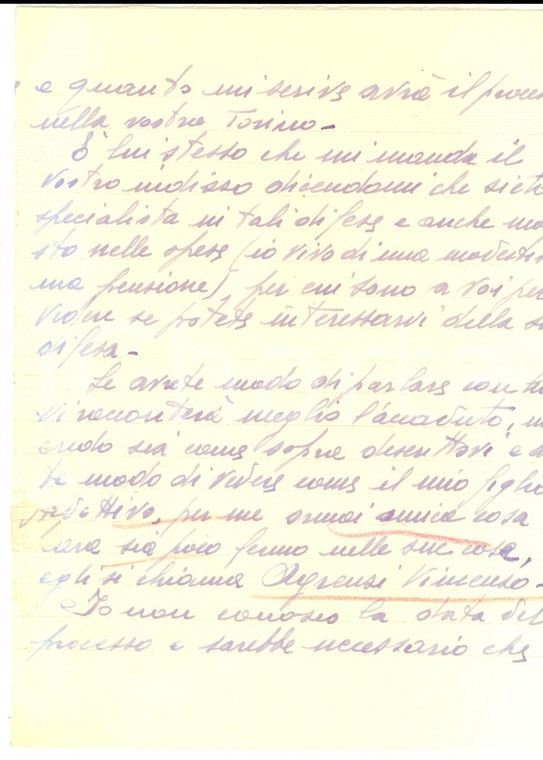 e quanto mi scrive avrà il proces
nella vostra Torino -
È lui stesso che mi manda il
vostro indirizzo dicendomi che siete
specialista in tali difese e anche mo
sto nelle spese (io vivo di una modestis
ma pensione), per cui sono a voi per
vedere se potete interessarvi della s
difesa -
Se avete modo di parlare con
vi racconterà meglio l'accaduto,
credo sia come sopra descrittovi e
te modo di vedere come il mio figlio
per me ormai unica cosa
cara sia poco fermo nelle sue cose,
egli si chiama Agrensi Vincenso -
Io non conosco la data del
processo e sarebbe necessario che